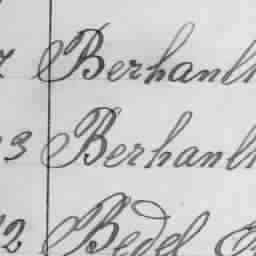 7 Berhanl
3 Berhanl
2 Bedel